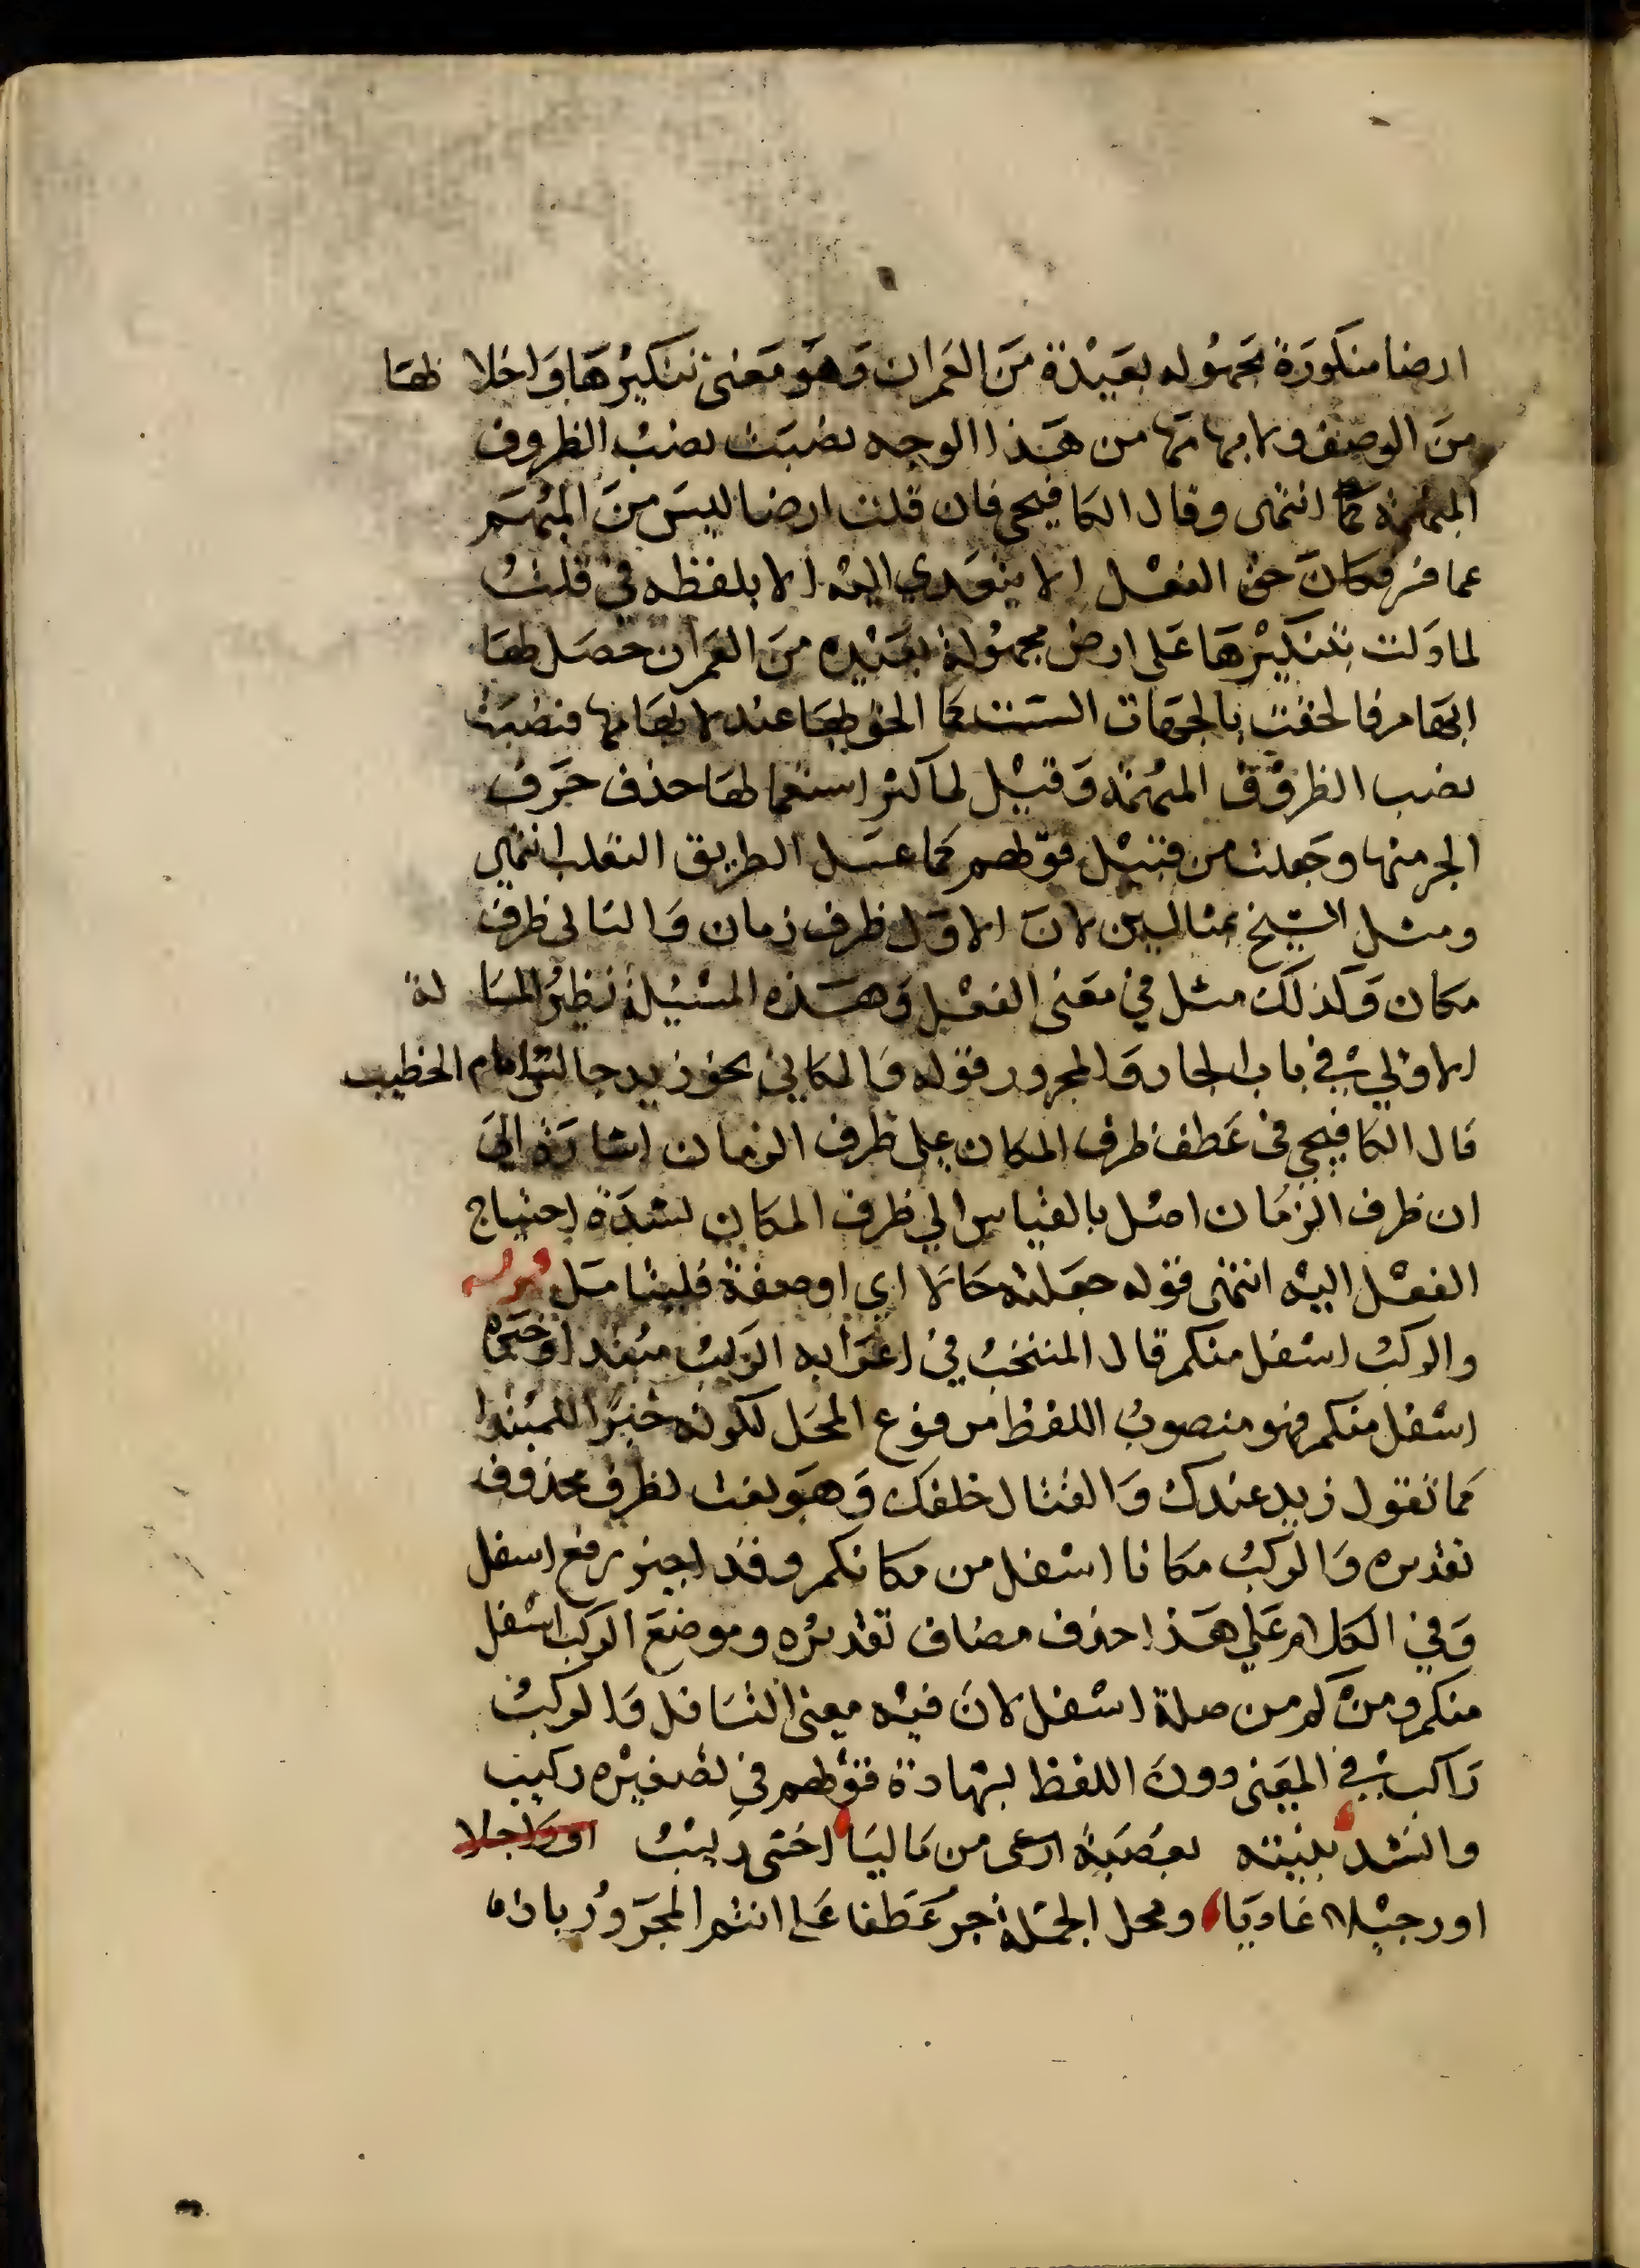 ارضا منكورة مجهوله بعيدة من العمران وهو معنى تنكيرها واخلا ئها
من الوصف ولا بهامها من هذا الوجه نصبت نصب الظروف
المبهمة انتهى وقال الكافيجي فان قلت ارضا ليس من المبهم
فكان حق الفعل ان لا يتعدي اليه الا بلفظه في قلت
لما دلت بتنكيرها على ارض مجهولة بعيده من العمران حصل لها
ابهام فالحقت بالجهات الست كما الحق بها عند لابهامها فنصبت
نصب الظروف المبهمة وقيل لما كثر استعمالها حذف حرف
الجر منها وجعلت من قبيل قولهم كما عسل الطريق الثعلب انتهى
ومثل الشيخ بمثالين لان الاول ظرف زمان والثاني ظرف
مكان وكذلك مثل في معنى الفعل وهذه المسئلة نظير المسا لة
الاولى في باب الجار والمجرور قوله والمكاني نحو زيد جالس امام الخطيب
قال الكافيجي في عطف ظرف المكان على ظرف الزمان اشارة الى
ان ظرف الزمان اصل بالقياس الي ظرف المكان لشدة احتياج
الفعل اليه انتهى قوله جعلته حالا اي او صفة فليتامل
والركب اسفل منكم قال المنتخب في اعرابه الركب مبتدا وخبره
اسفل منكم فهو منصوب اللفظ مرفوع المحل لكونه خبرا للمبتدا
كما تقول زيد عندك والقتال خلفك وهو نعت لظرف محذوف
تقديره والركب مكانا اسفل من مكانكم وقد اجيز رفع اسفل
وفي الكلام على هذا حذف مضاف تقديره وموضع الركب اسفل
منكم ومن كم من صلة اسفل لان فيه معنى التسافل والركب
راكب في المعنى دون اللفظ بشهادة قولهم في تصغيره ركيب
وانشد بنيته بعصبة من ماليا اخشى ركيب او راجلا
او رجيلا غاديا ومحل الجملة جر عطفا على انتم المجرور باذ